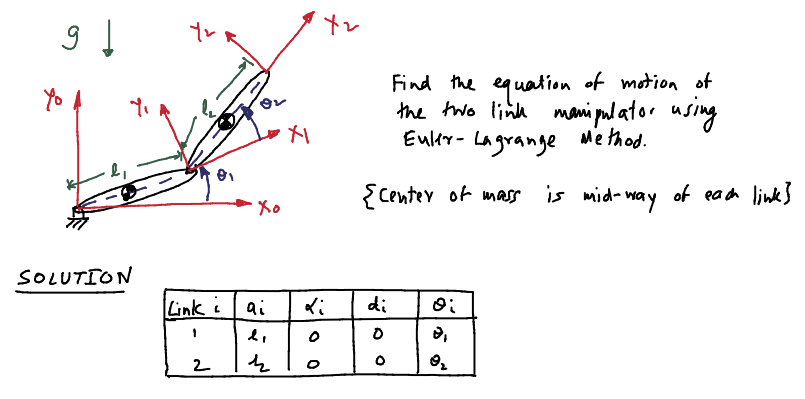 g
Y₂
X₂
Y₀
Y₁
l₂
θ₂
X₁
l₁
θ₁
X₀
Find the equation of motion of
the two link manipulator using
Euler-Lagrange Method.
{Center of mass is mid-way of each link}
SOLUTION
Link i ai αi di θi
1 l₁ 0 0 θ₁
2 l₂ 0 0 θ₂